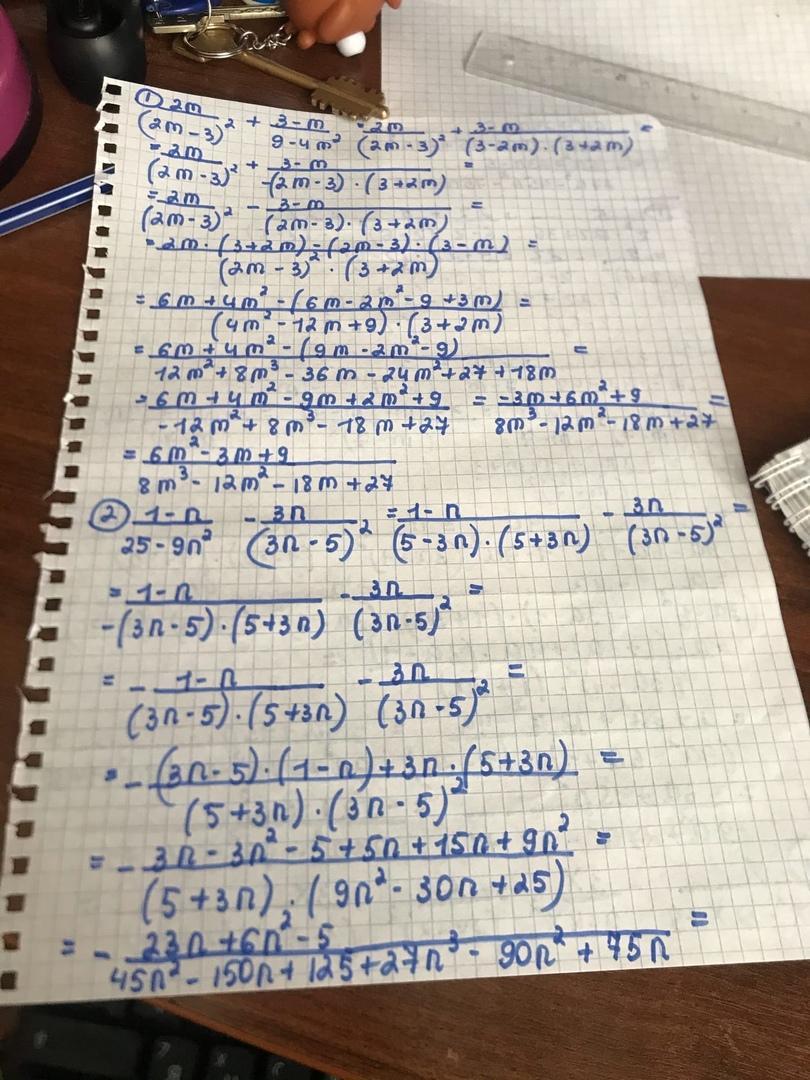 ① 2m/(2m-3)² + 3-m/9-4m² = 2m/(2m-3)² + 3-m/(3-2m)·(3+2m) =
= 2m/(2m-3)² + 3-m/-(2m-3)·(3+2m) =
= 2m/(2m-3)² - 3-m/(2m-3)·(3+2m) =
= 2m·(3+2m)-(2m-3)·(3-m)/(2m-3)²·(3+2m) =
= 6m+4m²-(6m-2m²-9+3m)/(4m²-12m+9)·(3+2m) =
= 6m+4m²-(9m-2m²-9)/12m²+8m³-36m-24m²+27+18m =
= 6m+4m²-9m+2m²+9/-12m²+8m³-18m+27 = -3m+6m²+9/8m³-12m²-18m+27 =
= 6m²-3m+9/8m³-12m²-18m+27
② 1-n/25-9n² - 3n/(3n-5)² = 1-n/(5-3n)·(5+3n) - 3n/(3n-5)² =
= 1-n/-(3n-5)·(5+3n) - 3n/(3n-5)² =
= - 1-n/(3n-5)·(5+3n) - 3n/(3n-5)² =
= - (3n-5)·(1-n)+3n·(5+3n)/(5+3n)·(3n-5)² =
= - 3n-3n²-5+5n+15n+9n²/(5+3n)·(9n²-30n+25) =
= - 23n+6n²-5/45n²-150n+125+27n³-90n²+75n =